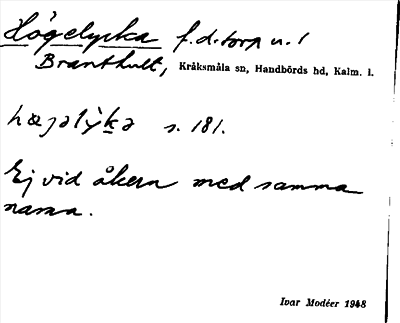 Högelycka f.d. torp u. 1
Branthult, Kråksmåla sn, Handbörds hd, Kalm. l.
hæǥəlỳk̲ə s. 181.
Ej vid åkern med samma
namn.
Ivar Modéer 1948